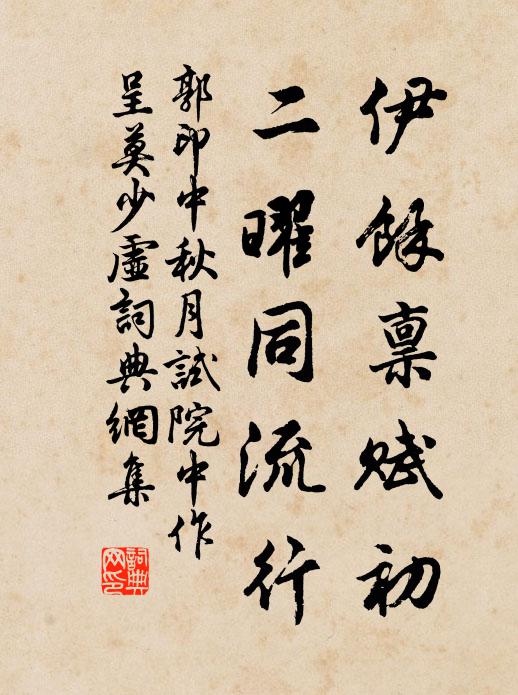 伊餘稟賦初
二曜同流行
郭印中秋月試院中作
呈莫少虛詞典網集
詞典網印